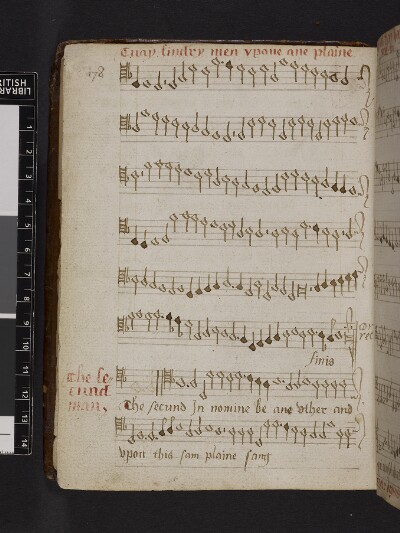 Tuay sindry men vpone ane plaine
178
finis
The se-
cund
man.
The secund In nomine be ane vther and
vpon this sam plaine sang
BRITISH
LIBRARY
1
2
3
4
5
6
7
8
9
10
11
12
13
14